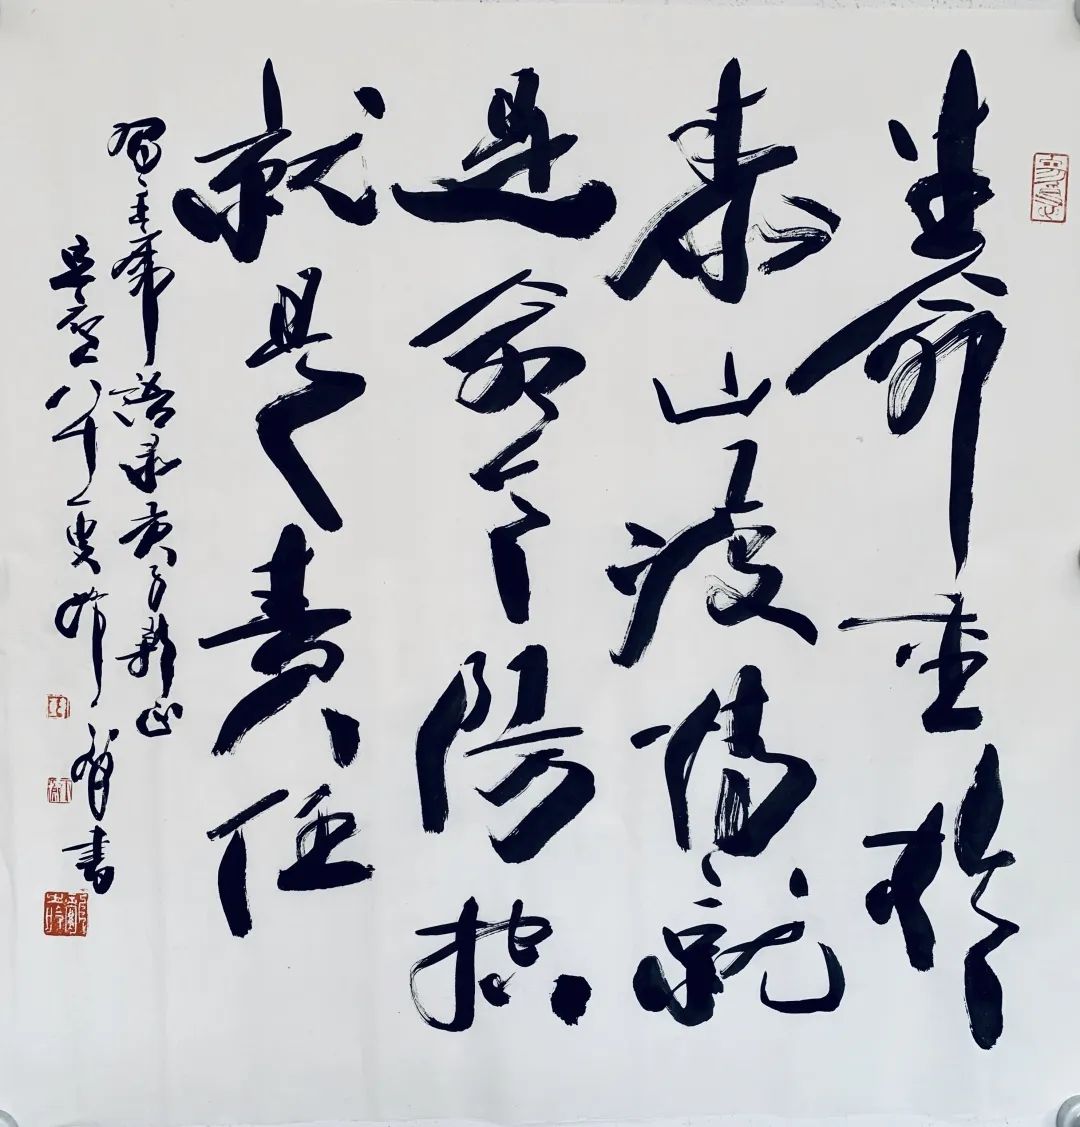 生命重於
泰山疫情就
是命令防控
就是責任
習主席語录庚子新正
八十叟書